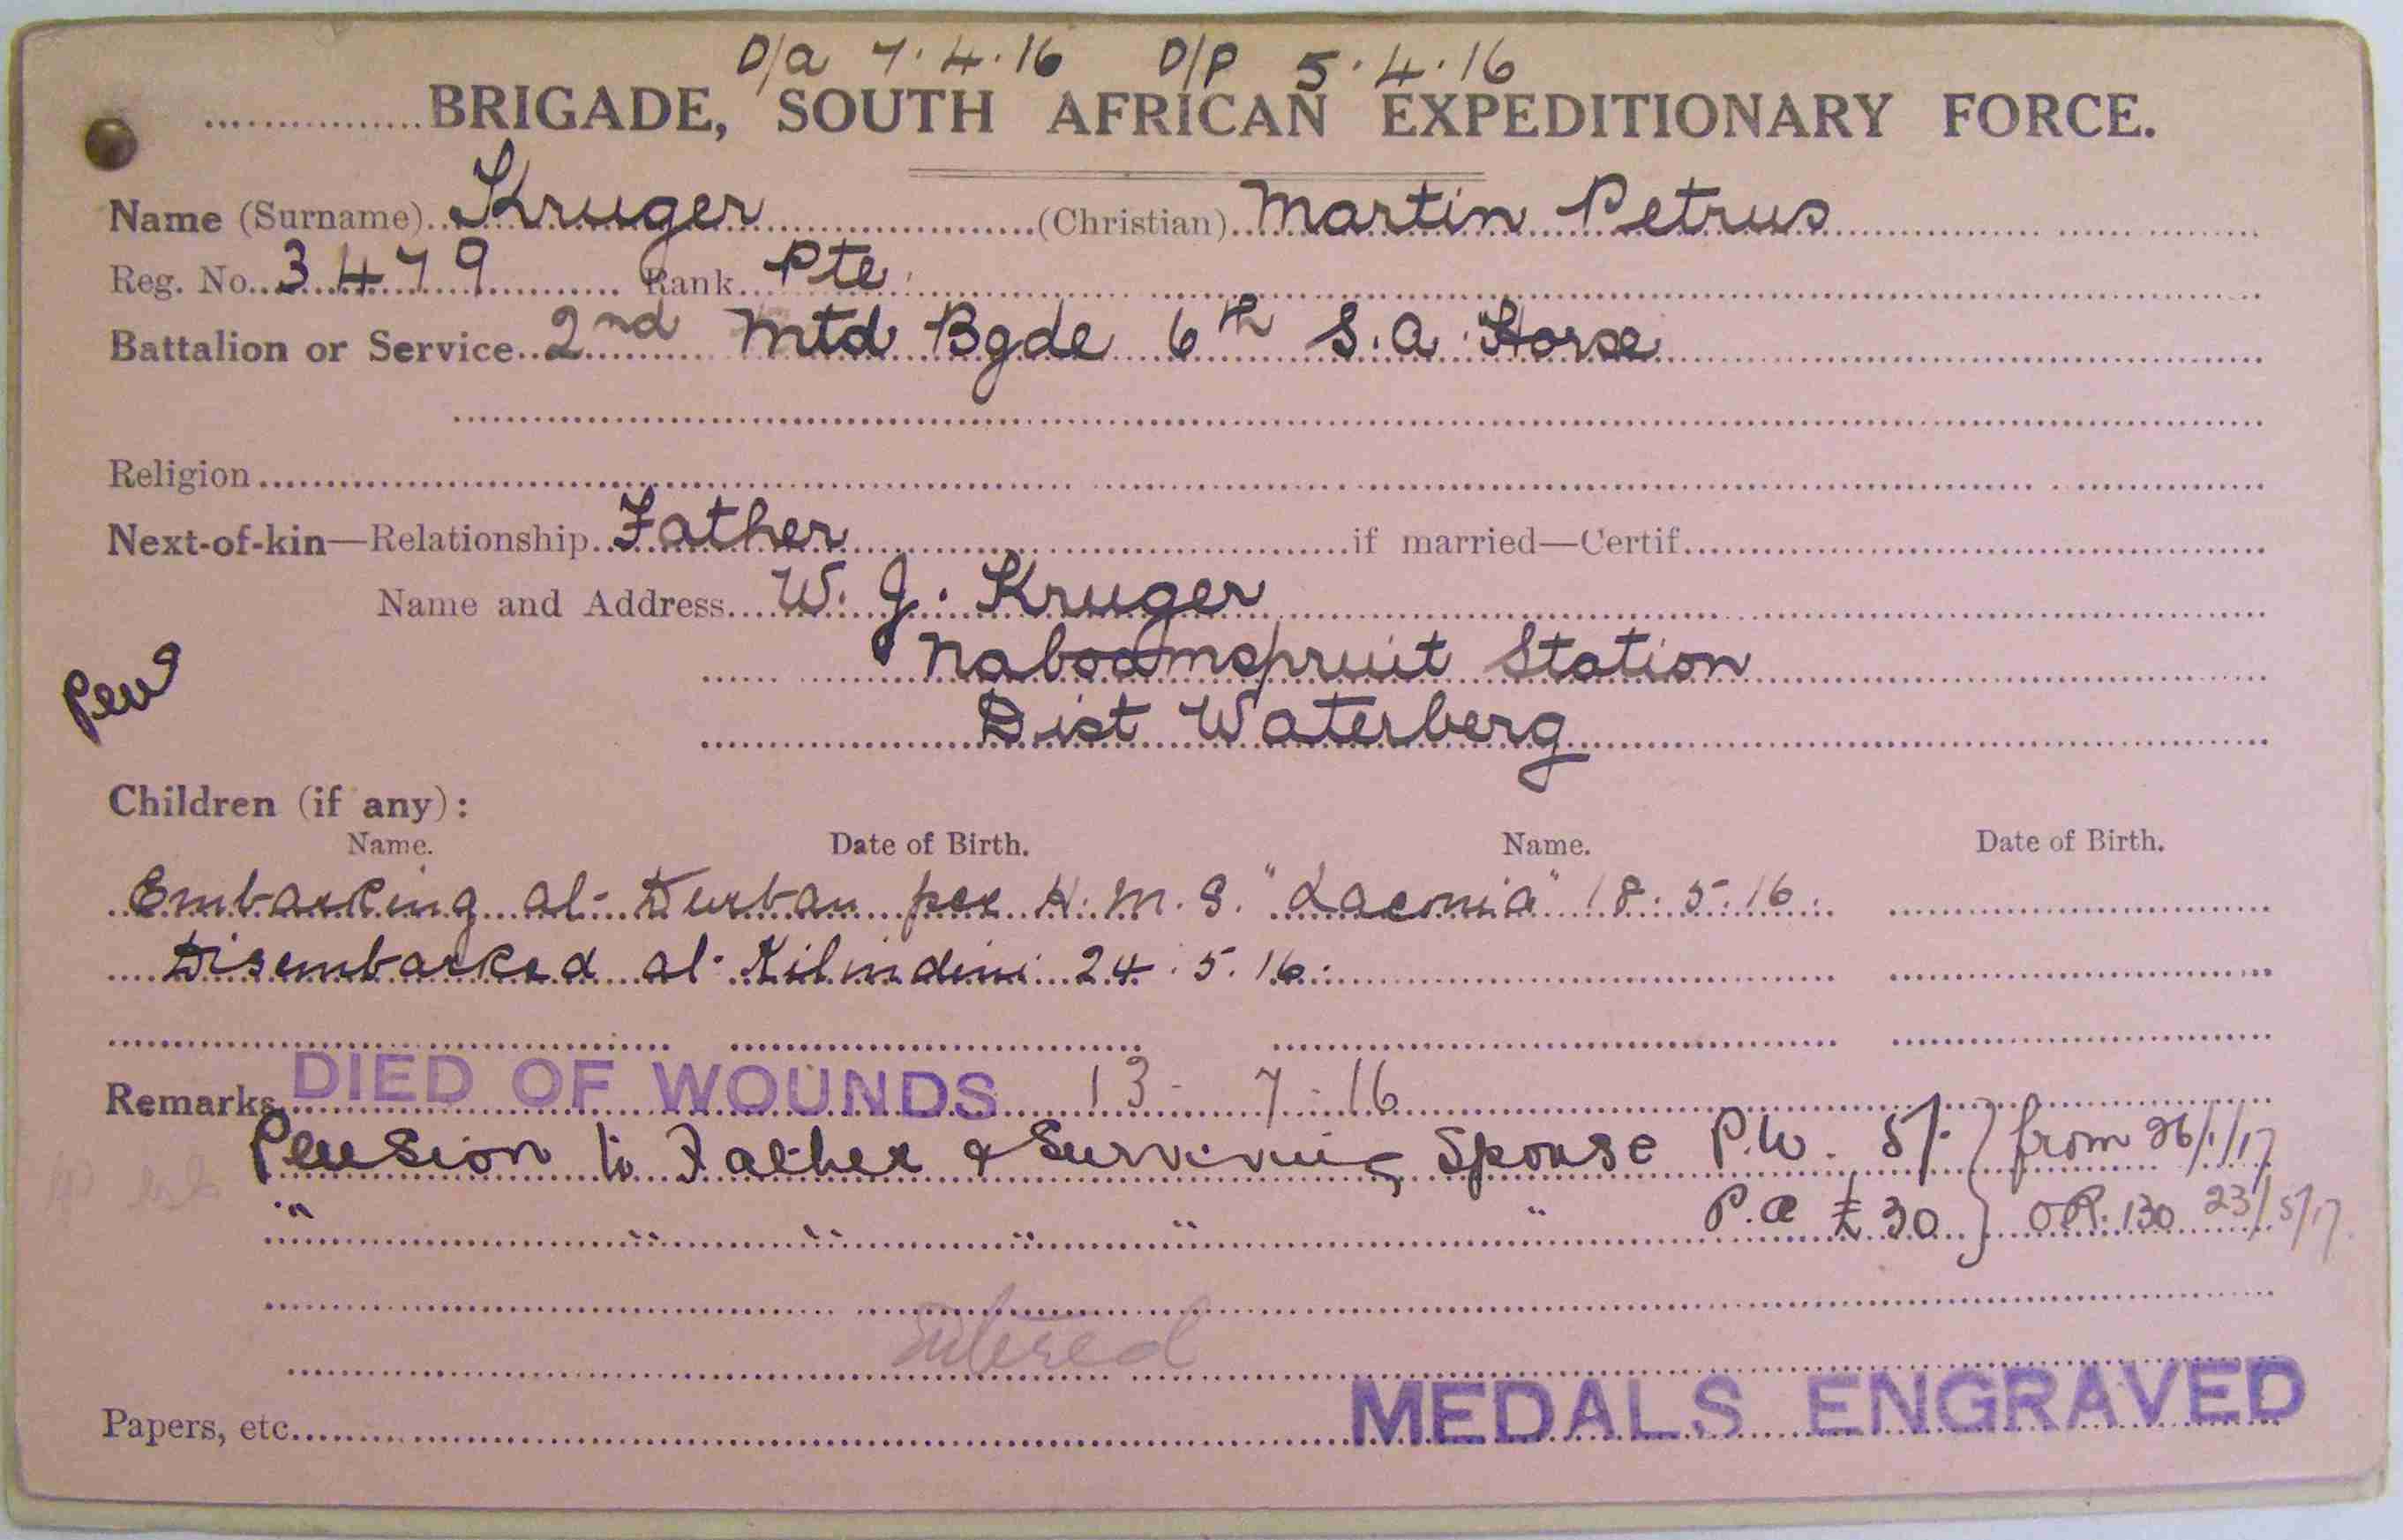 D/a 7.4.16 D/P 5.4.16
BRIGADE, SOUTH AFRICAN EXPEDITIONARY FORCE.
Name (Surname) Kruger (Christian) Martin Petrus
Reg. No. 3479 Rank Pte
Battalion or Service 2nd Mtd Bgde 6th S.A. Horse
Religion
Next-of-kin—Relationship Father if married—Certif
Name and Address W. J. Kruger
Naboomspruit Station
Dist Waterberg
Children (if any):
Name. Date of Birth. Name. Date of Birth.
Embarking at Durban per H.M.S. "Laconia" 18.5.16.
Disembarked at Kilindini 24.5.16.
Remarks DIED OF WOUNDS 13-7-16
Pension to Father & Surviving Spouse P.W. 5/- } from 26/1/17
" " " " " " P.a £30 } OP. 130 23/5/17
Entered
MEDALS ENGRAVED
Papers, etc.